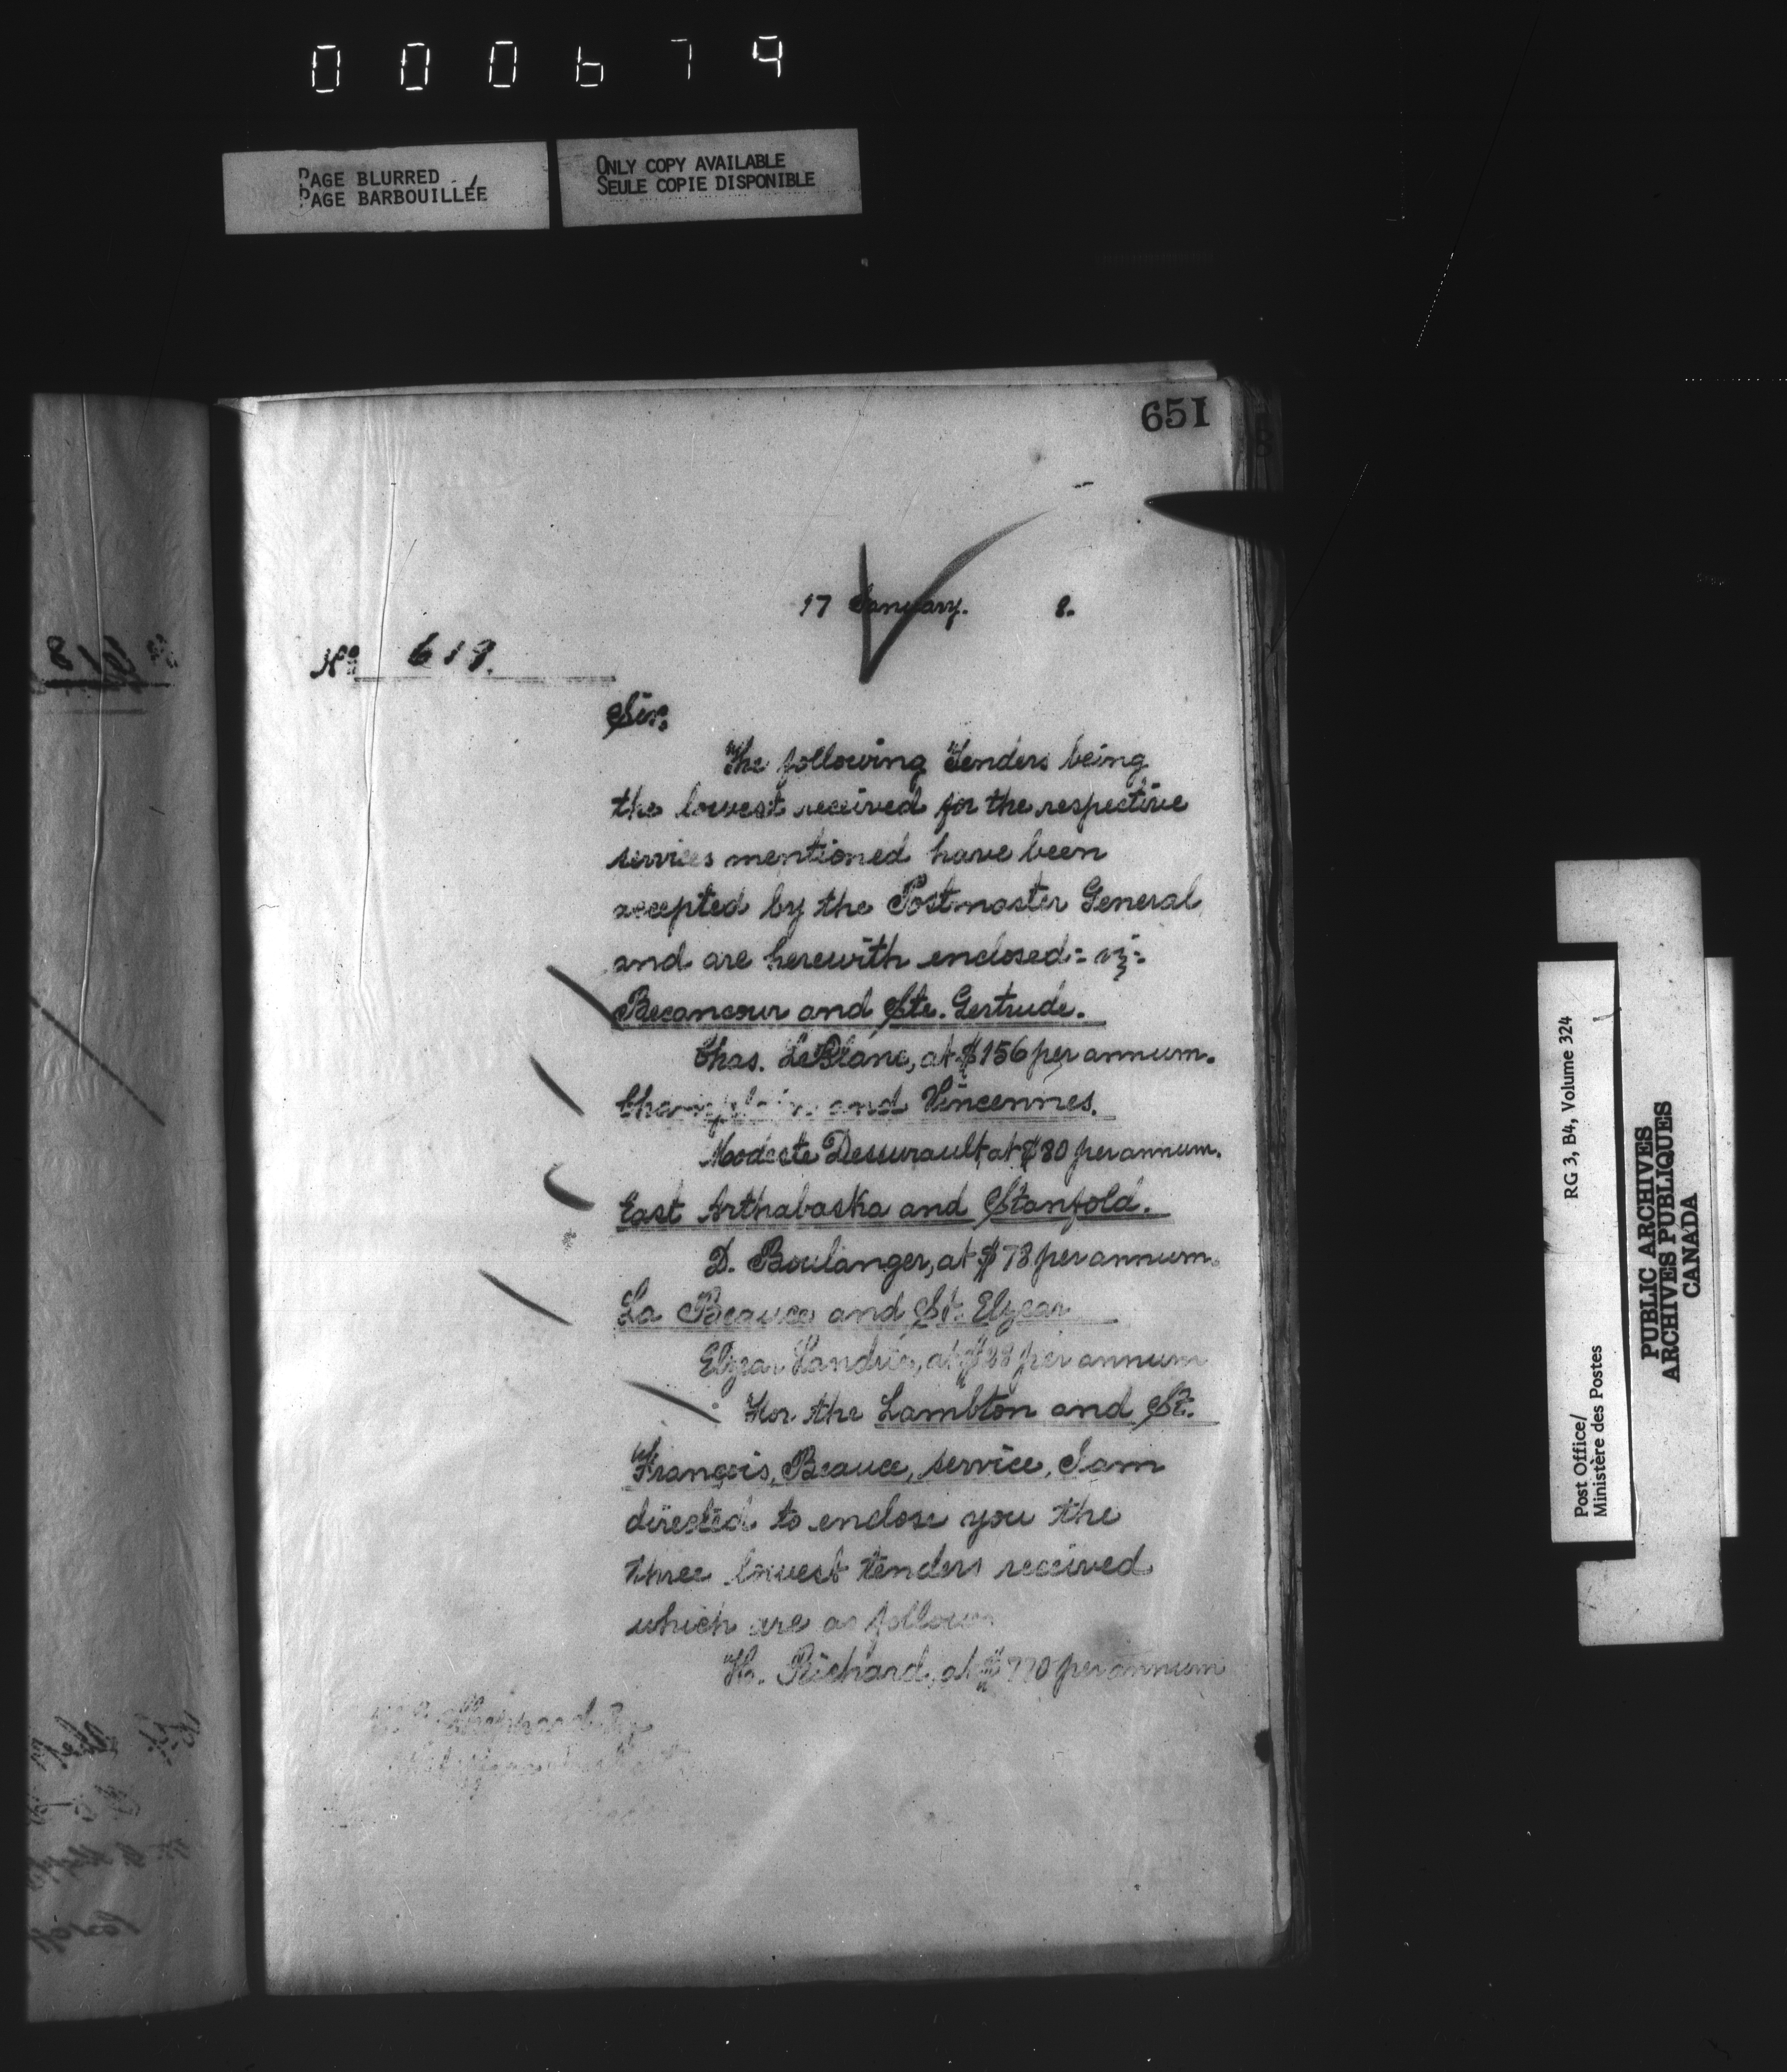 000679
PAGE BLURRED
PAGE BARBOUILLÉE
ONLY COPY AVAILABLE
SEULE COPIE DISPONIBLE
651
17 January. 8.
No 619.
Sir,
The following Tenders being
the lowest received for the respective
services mentioned have been
accepted by the Postmaster General
and are herewith enclosed:- viz:-
Becancour and Ste. Gertrude.
Chas. LeBlanc, at $156 per annum.
Champlain and Vincennes.
Modeste Dessurault, at $80 per annum.
East Arthabaska and Stanfold.
D. Boulanger, at $73 per annum.
La Beauce and St. Elzear
Elzear at per annum
For the Lambton and St.
François, Beauce, service, I am
directed to enclose you the
three lowest tenders received
which are as follows
H. Richard, at $770 per annum
618
RG 3, B4, Volume 324
Post Office/
Ministère des Postes
PUBLIC ARCHIVES
ARCHIVES PUBLIQUES
CANADA